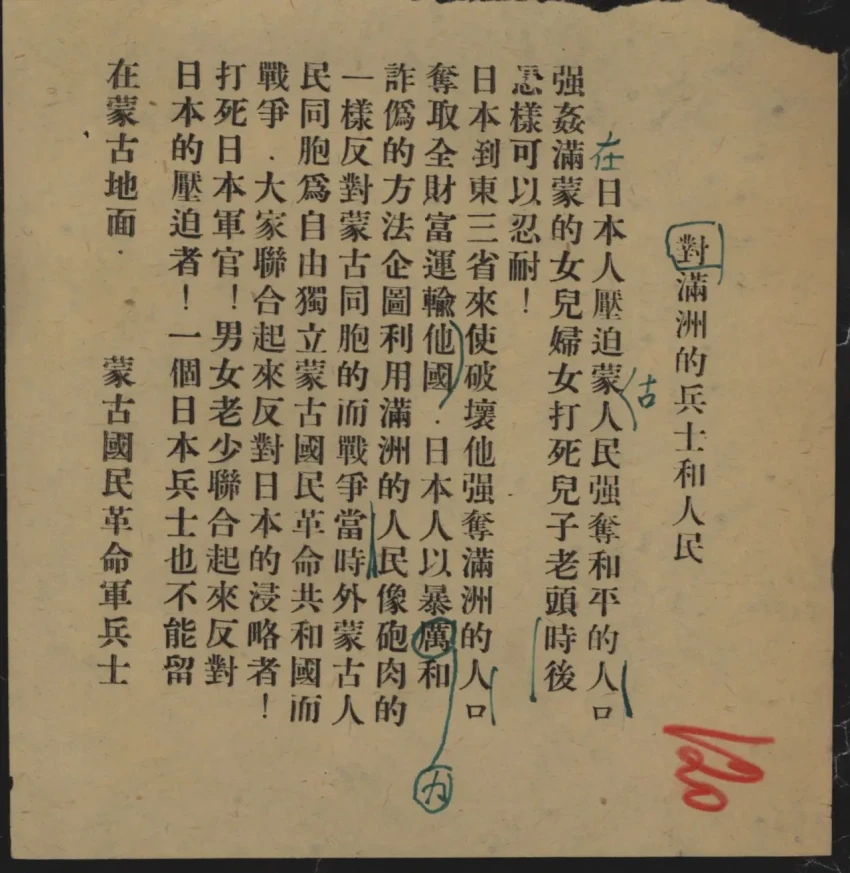 對滿洲的兵士和人民
在日本人壓迫蒙人民强奪和平的人口
古
强姦滿蒙的女兒婦女打死兒子老頭時後
怎樣可以忍耐！
日本到東三省來使破壞他强奪滿洲的人口
奪取全財富運輸他國．日本人以暴厲和
力
詐僞的方法企圖利用滿洲的人民像砲肉的
一樣反對蒙古同胞的而戰爭當時外蒙古人
民同胞爲自由獨立蒙古國民革命共和國而
戰爭．大家聯合起來反對日本的浸略者！
打死日本軍官！男女老少聯合起來反對
日本的壓迫者！一個日本兵士也不能留
在蒙古地面． 蒙古國民革命軍兵士
120